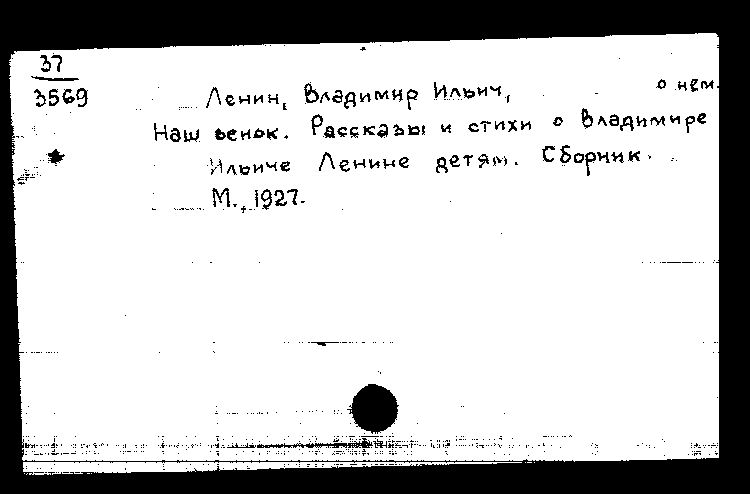 37
3569
Ленин, Владимир Ильич, о нем.
Наш венок. Рассказы и стихи о Владимире
Ильиче Ленине детям. Сборник.
М., 1927.